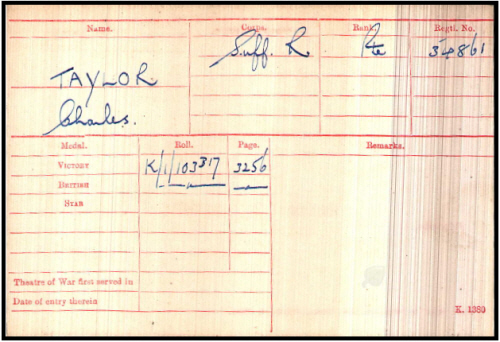 Name. Corps. Rank. Regtl. No.
Suff. R Pte 34861
TAYLOR
Charles.
Medal. Roll. Page. Remarks.
VICTORY K/1/103317 3256
BRITISH " "
STAR
Theatre of War first served in
Date of entry therein
K. 1380